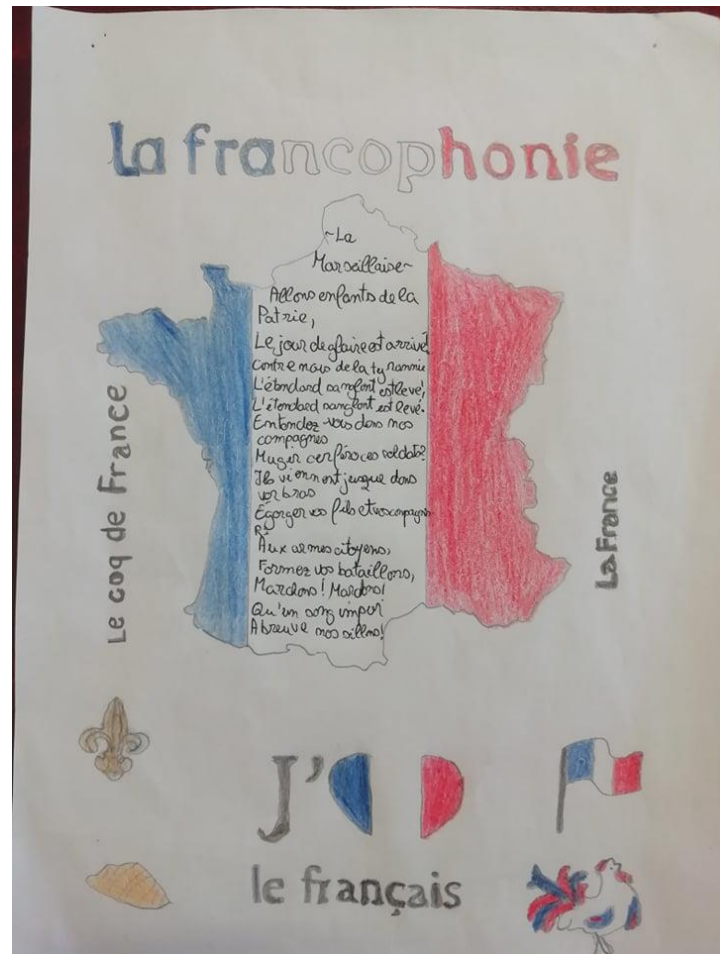 la francophonie
~La
Marseillaise~
Allons enfants de la
Patrie,
Le jour de gloire est arrivé!
Contre nous de la tyrannie
L'étendard sanglant est levé,
L'étendard sanglant est levé.
Entendez-vous dans nos
compagnes
Mugir ces féroces soldats?
Ils viennent jusque dans
vos bras
Égorger vos fils et vos compagnes
R:
Aux armes citoyens,
Formez vos bataillons,
Mardons! Mardons!
Qu'un sang impur
Abreuve nos sillons!
Le coq de France
La France
J'
le français